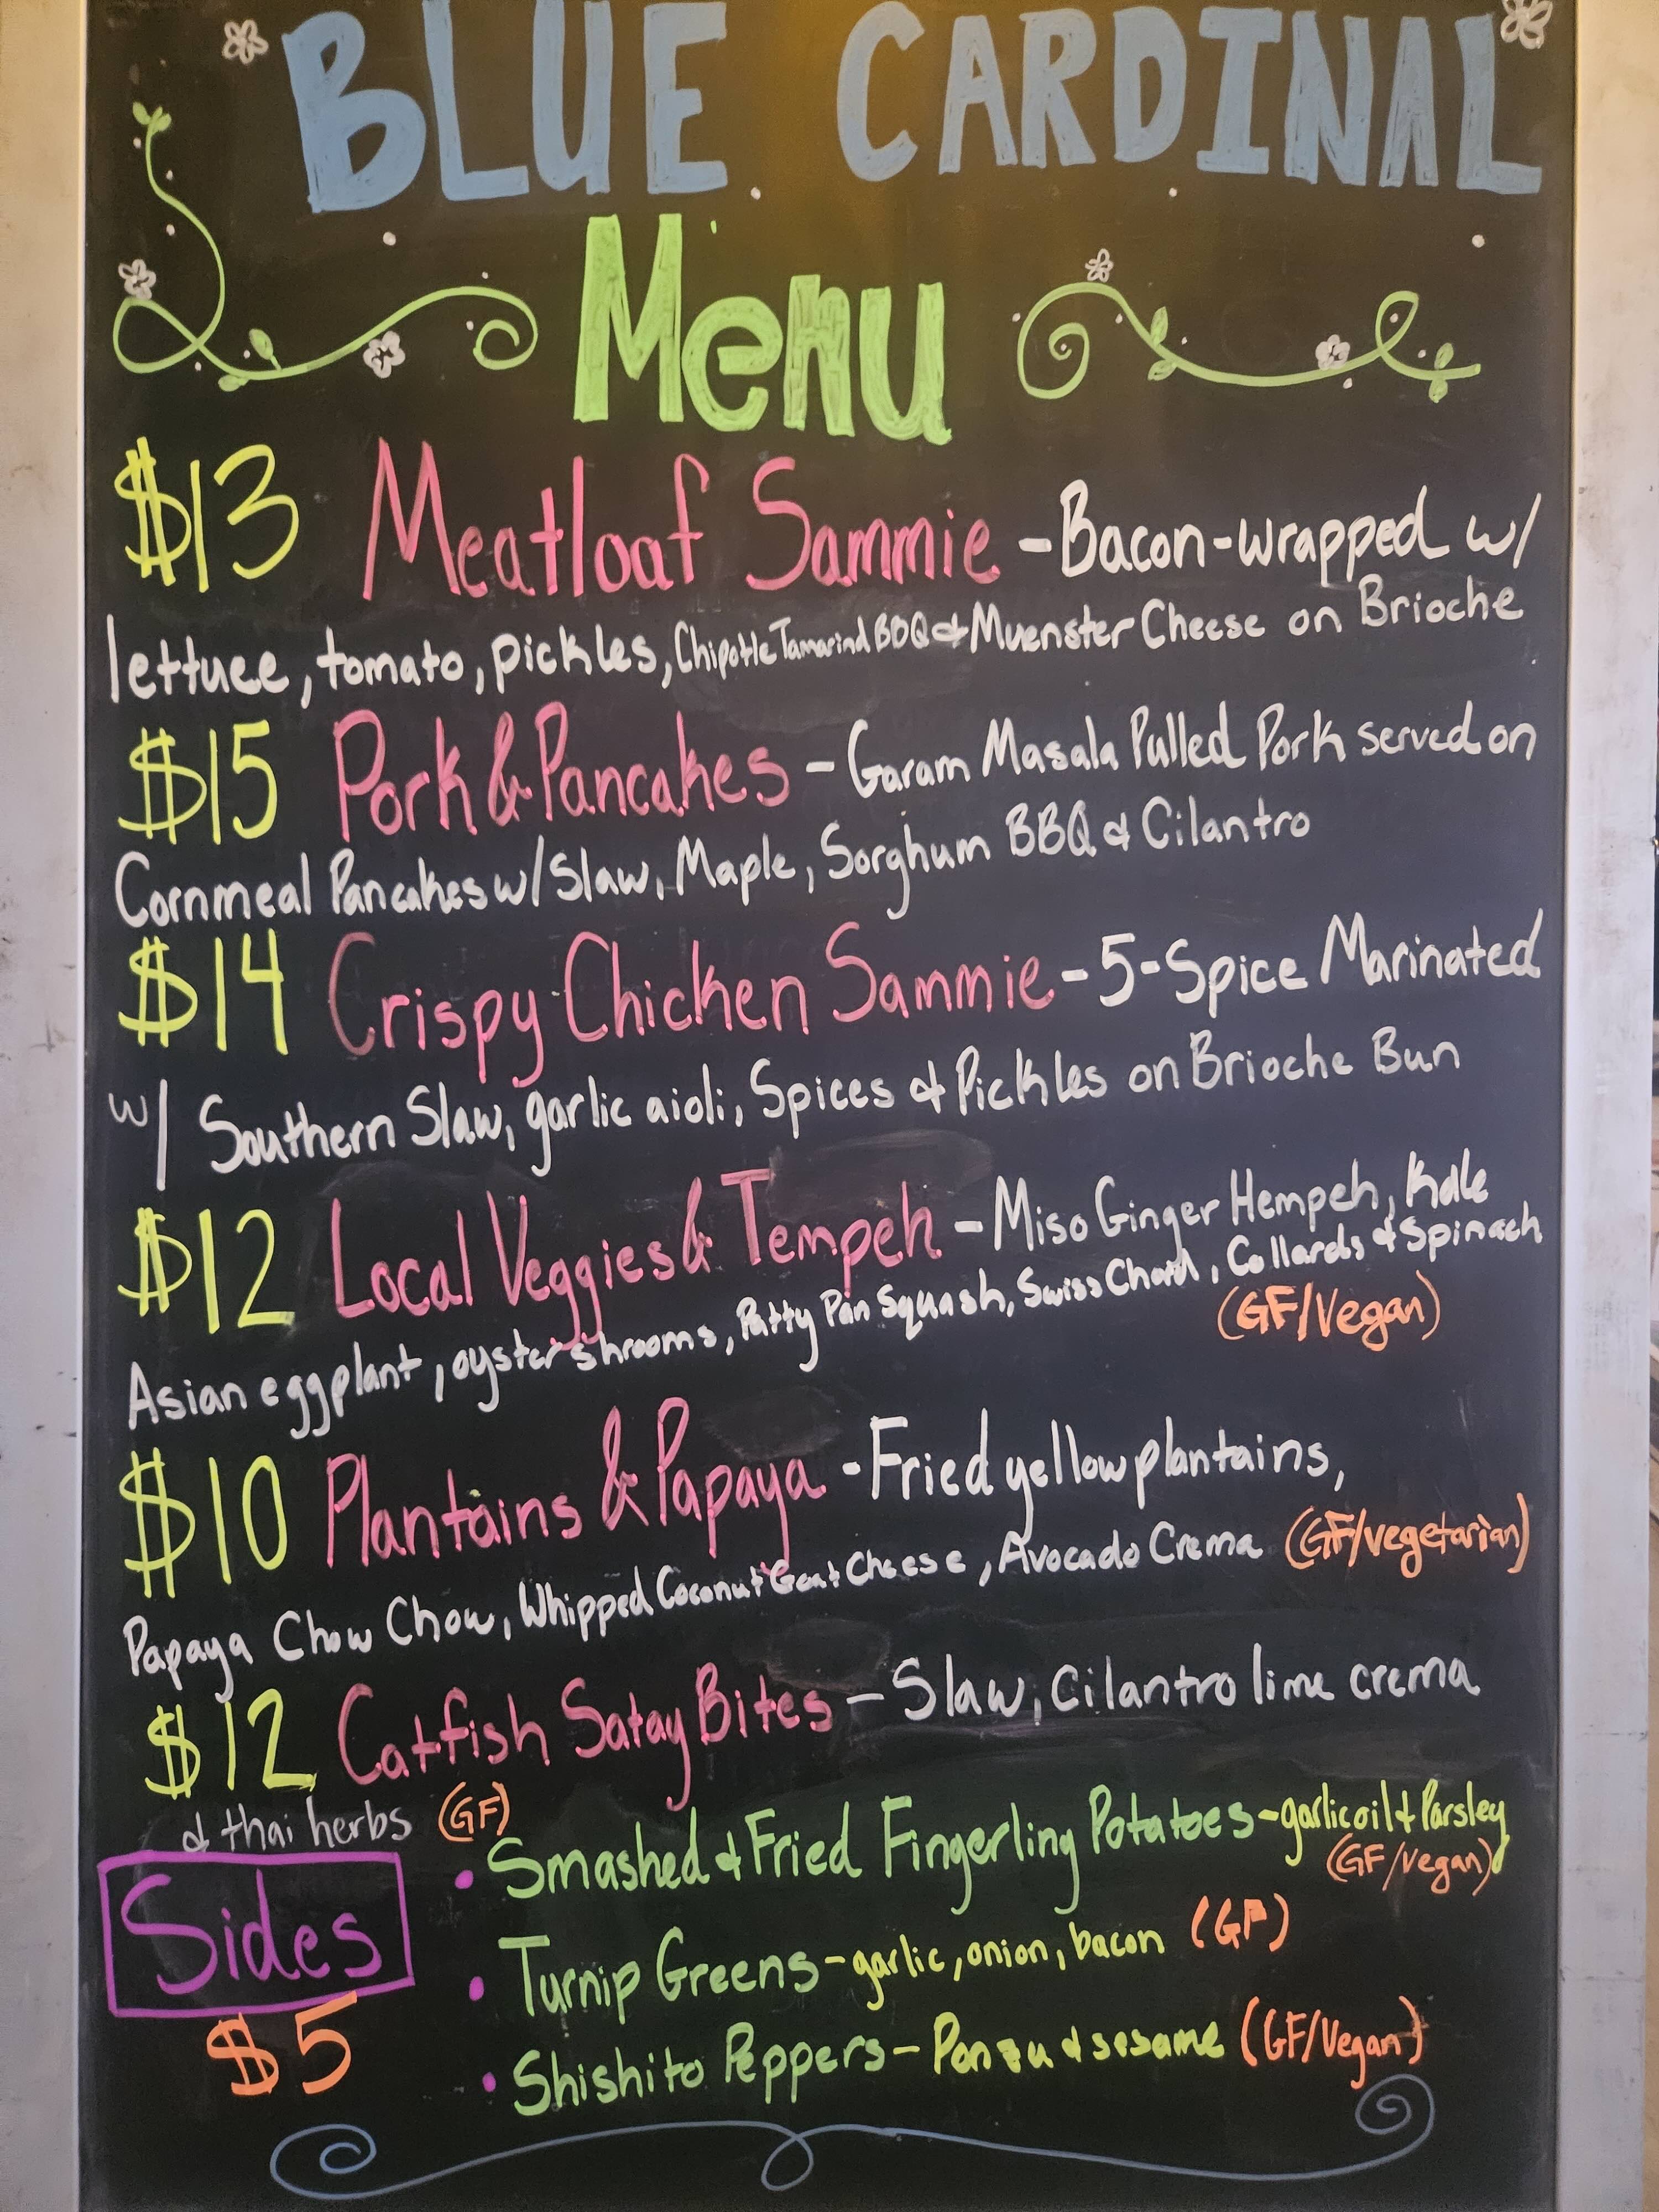 BLUE CARDINAL
Menu
$13 Meatloaf Sammie - Bacon-wrapped w/
lettuce, tomato, pickles, Chipotle Tamarind BBQ & Muenster Cheese on Brioche
$15 Pork & Pancakes - Garam Masala Pulled Pork served on
Cornmeal Pancakes w/ Slaw, Maple, Sorghum BBQ & Cilantro
$14 Crispy Chicken Sammie - 5-Spice Marinated
w/ Southern Slaw, garlic aioli, Spices & Pickles on Brioche Bun
$12 Local Veggies & Tempeh - Miso Ginger Hempeh, Kale
Asian eggplant, oyster shrooms, Patty Pan Squash, Swiss Chard, Collards & Spinach
(GF/Vegan)
$10 Plantains & Papaya - Fried yellow plantains,
Papaya Chow Chow, Whipped Coconut Goat Cheese, Avocado Crema (GF/vegetarian)
$12 Catfish Satay Bites - Slaw, Cilantro lime crema
& thai herbs (GF)
Sides
$5
• Smashed & Fried Fingerling Potatoes - garlic oil & Parsley
(GF/Vegan)
• Turnip Greens - garlic, onion, bacon (GF)
• Shishito Peppers - Ponzu & sesame (GF/Vegan)